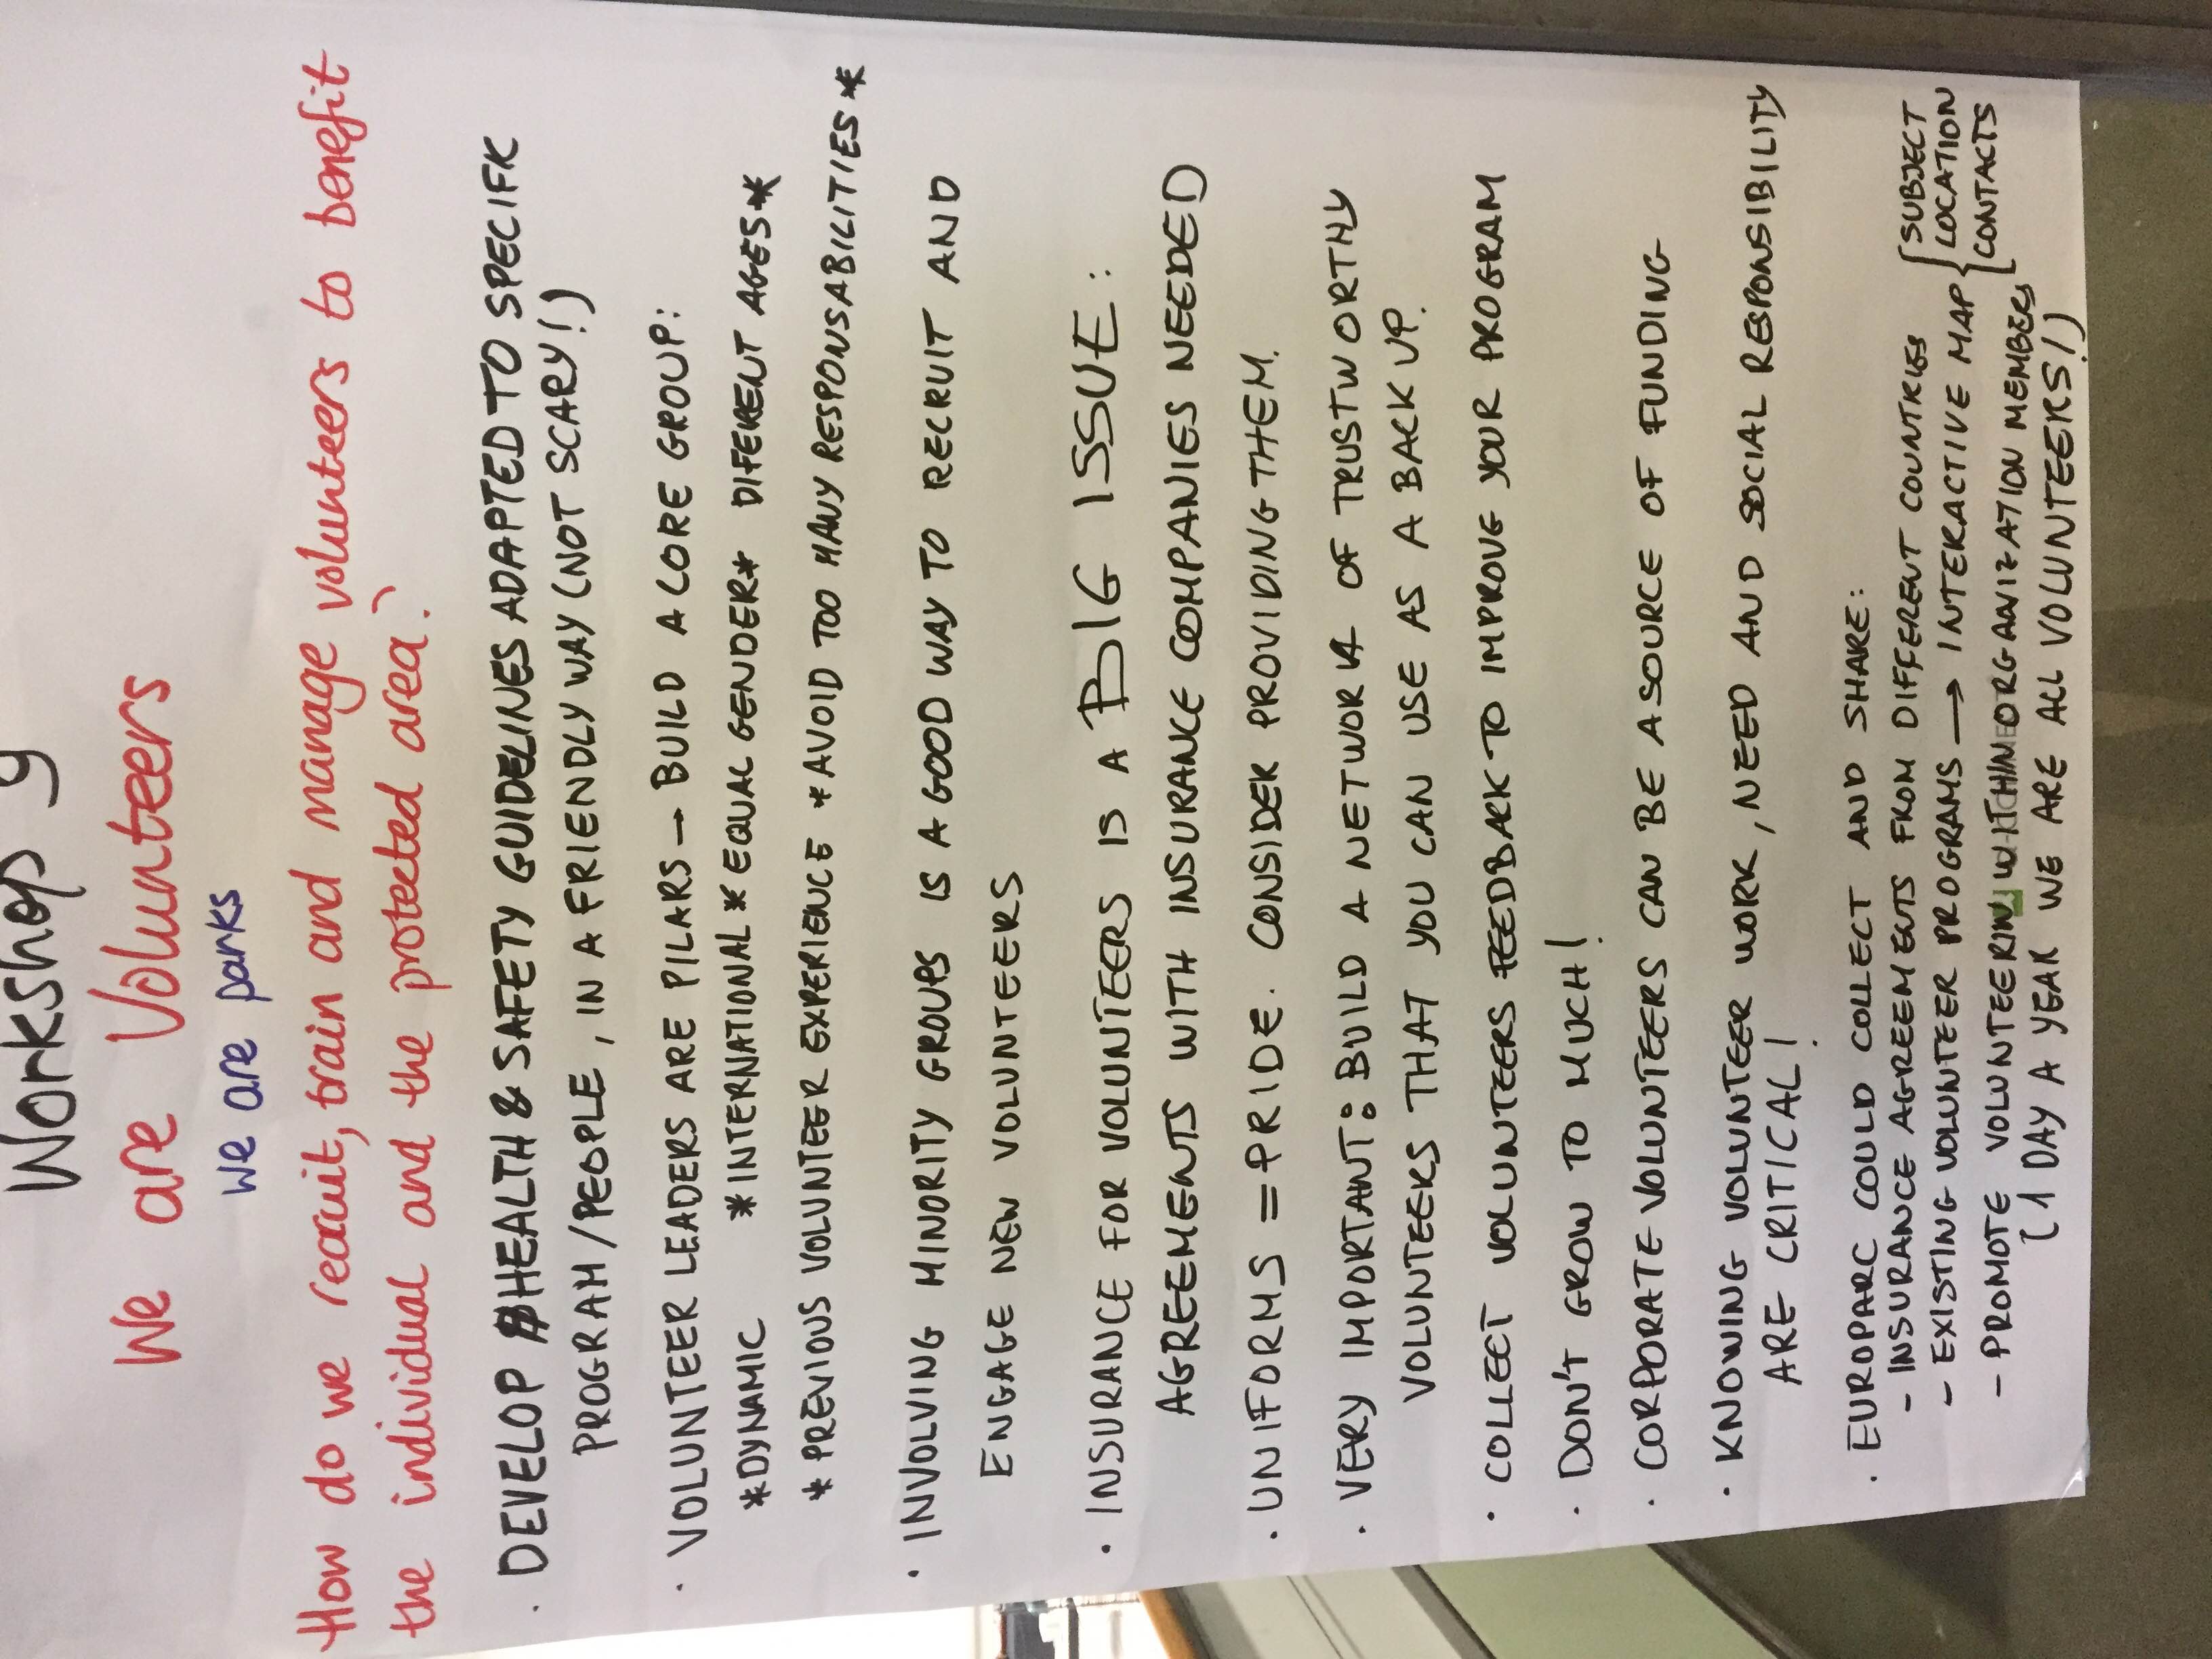 Workshop 9
We are Volunteers
we are parks
How do we recruit, train and manage volunteers to benefit
the individual and the protected area?
· DEVELOP HEALTH & SAFETY GUIDELINES ADAPTED TO SPECIFIC
PROGRAM/PEOPLE, IN A FRIENDLY WAY (NOT SCARY!)
· VOLUNTEER LEADERS ARE PILARS → BUILD A CORE GROUP:
*DYNAMIC *INTERNATIONAL* EQUAL GENDER* DIFERENT AGES*
* PREVIOUS VOLUNTEER EXPERIENCE * AVOID TOO MANY RESPONSABILITIES *
· INVOLVING MINORITY GROUPS IS A GOOD WAY TO RECRUIT AND
ENGAGE NEW VOLUNTEERS
· INSURANCE FOR VOLUNTEERS IS A BIG ISSUE:
AGREEMENTS WITH INSURANCE COMPANIES NEEDED
· UNIFORMS = PRIDE. CONSIDER PROVIDING THEM.
· VERY IMPORTANT: BUILD A NETWORK OF TRUSTWORTHY
VOLUNTEERS THAT YOU CAN USE AS A BACK UP.
· COLLECT VOLUNTEERS FEEDBACK TO IMPROVE YOUR PROGRAM
· DON'T GROW TO MUCH!
· CORPORATE VOLUNTEERS CAN BE A SOURCE OF FUNDING
· KNOWING VOLUNTEER WORK, NEED AND SOCIAL RESPONSIBILITY
ARE CRITICAL!
· EUROPARC COULD COLLECT AND SHARE:
- INSURANCE AGREEMENTS FROM DIFFERENT COUNTRIES
- EXISTING VOLUNTEER PROGRAMS → INTERACTIVE MAP { SUBJECT
LOCATION
CONTACTS
- PROMOTE VOLUNTEERIN WITHIN ORGANIZATION MEMBERS
(1 DAY A YEAR WE ARE ALL VOLUNTEERS!)